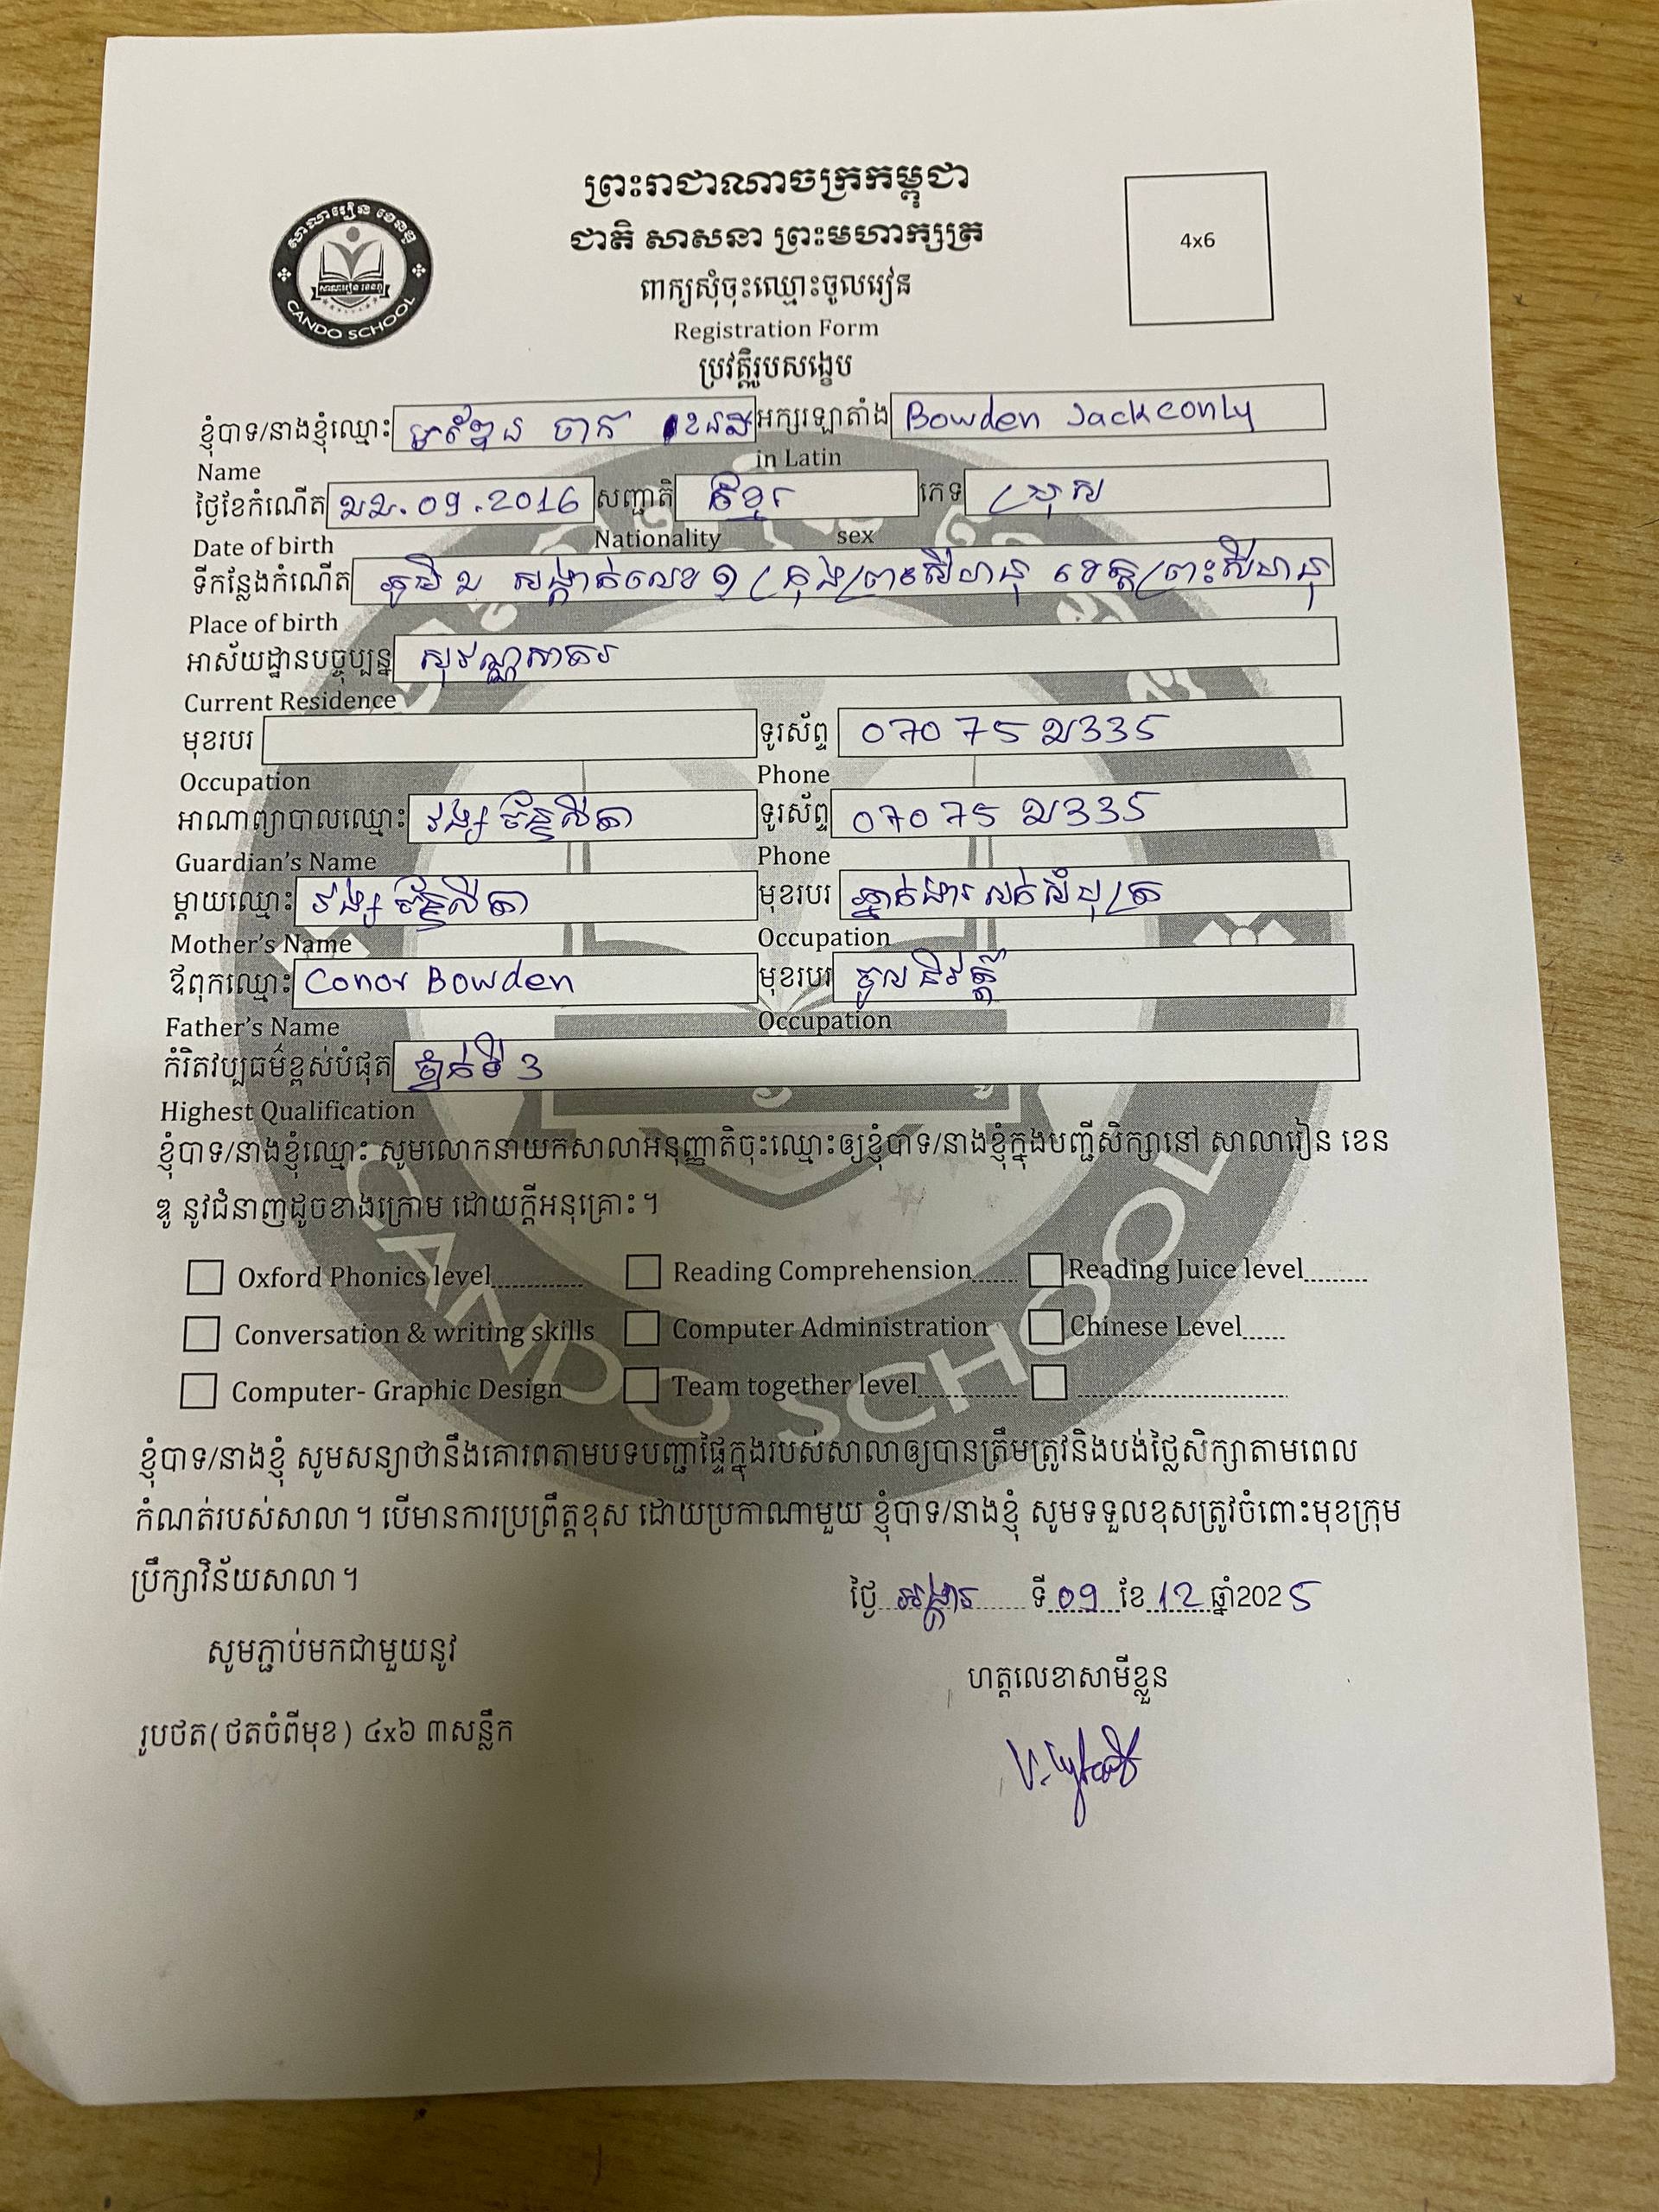 សាលារៀន ខេនឌូ
CANDO SCHOOL
ព្រះរាជាណាចក្រកម្ពុជា
ជាតិ សាសនា ព្រះមហាក្សត្រ
4x6
ពាក្យសុំចុះឈ្មោះចូលរៀន
Registration Form
ប្រវត្តិរូបសង្ខេប
ខ្ញុំបាទ/នាងខ្ញុំឈ្មោះ ចាក អក្សរឡាតាំង Bowden Jackconly
Name in Latin
ថ្ងៃខែកំណើត ២២.09.2016 សញ្ជាតិ ខ្មែរ ភេទ ប្រុស
Date of birth Nationality sex
ទីកន្លែងកំណើត ភូមិ ២ សង្កាត់លេខ ១ ក្រុងព្រះសីហនុ ខេត្តព្រះសីហនុ
Place of birth
អាស័យដ្ឋានបច្ចុប្បន្ន សុវណ្ណសាគរ
Current Residence
មុខរបរ ទូរស័ព្ទ 070 75 ២335
Occupation Phone
អាណាព្យាបាលឈ្មោះ វង្ស ច័ន្ទលីតា ទូរស័ព្ទ 07075 ២335
Guardian's Name Phone
ម្តាយឈ្មោះ វង្ស ច័ន្ទលីតា មុខរបរ ភ្នាក់ងារ លក់សំបុត្រ
Mother's Name Occupation
ឪពុកឈ្មោះ Conor Bowden មុខរបរ ចូលនិវត្តន៍
Father's Name Occupation
កំរិតវប្បធម៌ខ្ពស់បំផុត ថ្នាក់ទី 3
Highest Qualification
ខ្ញុំបាទ/នាងខ្ញុំឈ្មោះ សូមលោកនាយកសាលាអនុញ្ញាតិចុះឈ្មោះឲ្យខ្ញុំបាទ/នាងខ្ញុំក្នុងបញ្ជីសិក្សានៅ សាលារៀន ខេន
ឌូ នូវជំនាញដូចខាងក្រោម ដោយក្តីអនុគ្រោះ។
Oxford Phonics level............... Reading Comprehension...... Reading Juice level..........
Conversation & writing skills Computer Administration Chinese Level......
Computer- Graphic Design Team together level................ ..................................
ខ្ញុំបាទ/នាងខ្ញុំ សូមសន្យាថានឹងគោរពតាមបទបញ្ជាផ្ទៃក្នុងរបស់សាលាឲ្យបានត្រឹមត្រូវនិងបង់ថ្លៃសិក្សាតាមពេល
កំណត់របស់សាលា។ បើមានការប្រព្រឹត្តខុស ដោយប្រកាណាមួយ ខ្ញុំបាទ/នាងខ្ញុំ សូមទទួលខុសត្រូវចំពោះមុខក្រុម
ប្រឹក្សាវិន័យសាលា។
ថ្ងៃ អង្គារ ទី 09 ខែ 12 ឆ្នាំ2025
សូមភ្ជាប់មកជាមួយនូវ
ហត្ថលេខាសាមីខ្លួន
រូបថត(ថតចំពីមុខ) ៤x៦ ៣សន្លឹក